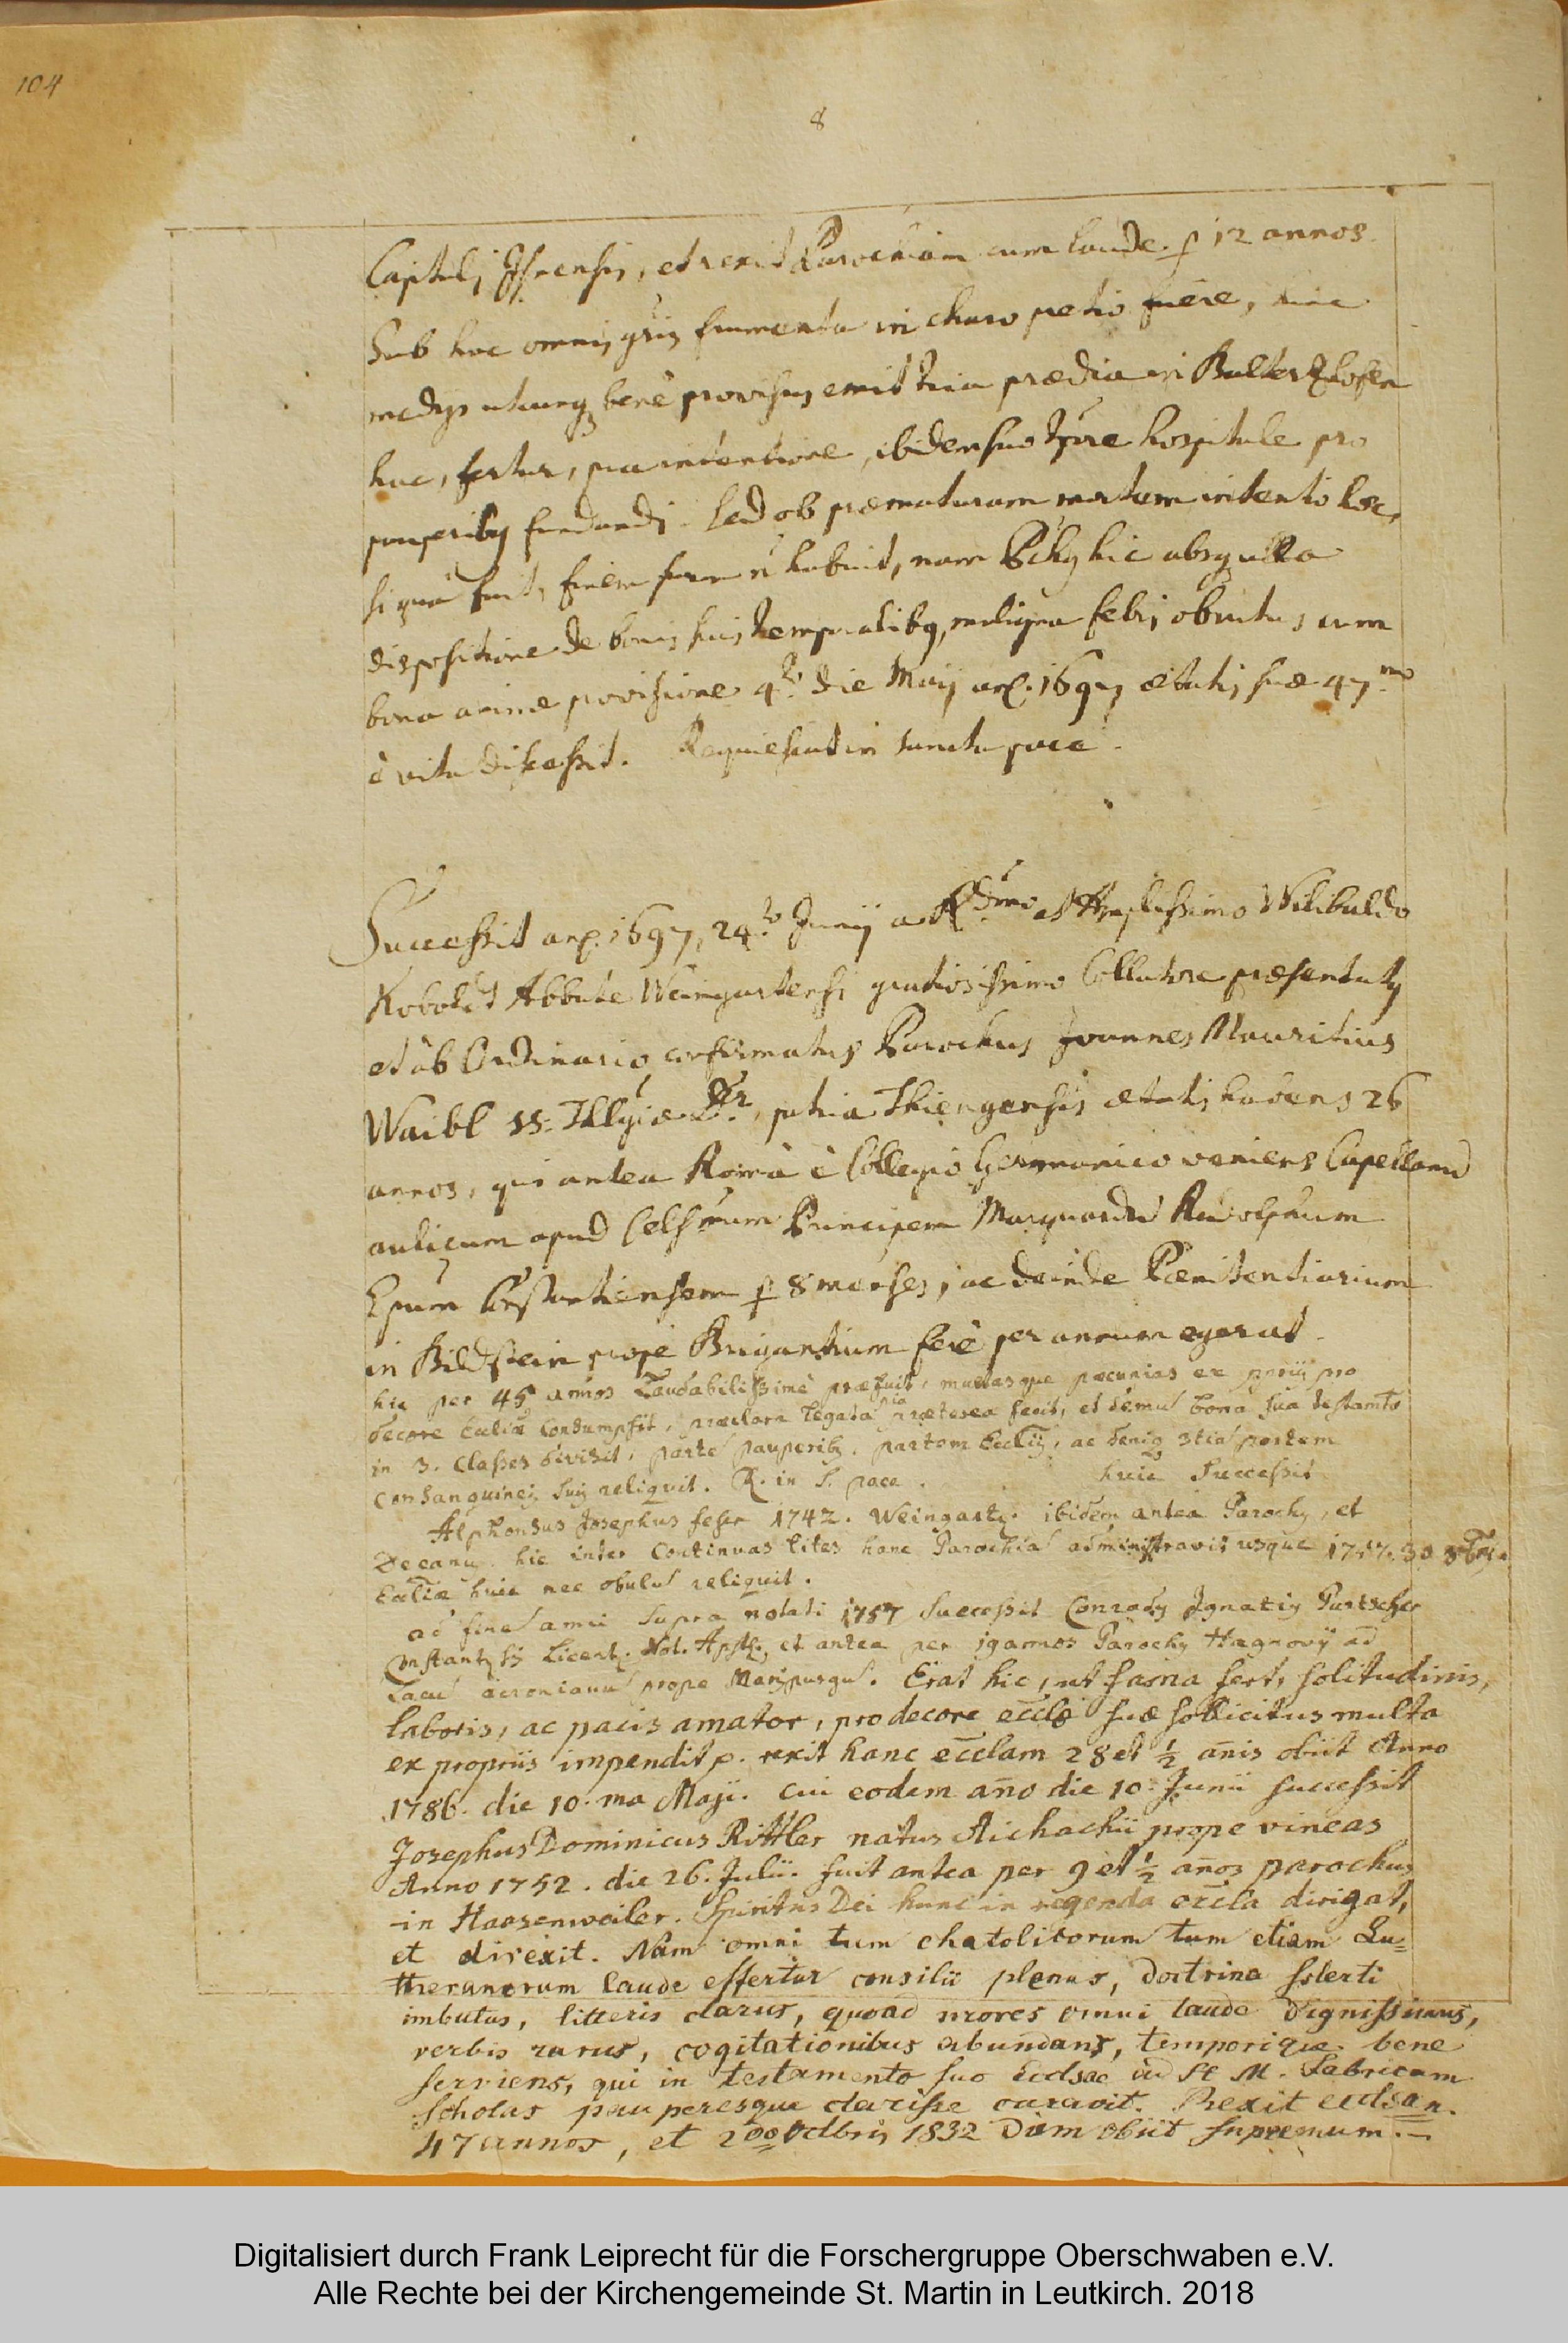 104
8
Capituli Isnensis, et rexit Parochiam cum laude p 12 annos.
Sub hoc omnis gñis frumenta in charo pretio fuêre, hinc
medijs utcunq; benè provisus emit tria prædia in Balterzhofen
hac, fertur, pia intentione, ibidem suo tp̃re hospitale pro
pauperibq fundandi. Sed ob præmaturam mortem intentio hæc,
si qua fuit, finem suum ñ habuit, nam Pchq hic absq ulla
dispositione de bonis suis temporalibq, maligna febri obrutus cum
bona animæ provisione 4to die Maij aõ. 1697 ætatis suæ 47mo
è vita discessit. Requiescat in sancta pace.
Successit aõ. 1697, 24to Junij a Rdm̃o et Amplissimo Wilibaldo
Kobolt Abbate Weingartensi gratiosissimo Collatore præsentatq
et ab Ordinario confirmatus Parochus Joannes Mauritius
Waibl SS. Thlgiæ Dr., patria Thiengensis ætatis habens 26
annos, qui antea Româ è Collegio Germanico veniens Capellanũ
aulicum apud Cels̃mum Principem Marquardũ Rudolphum
Ep̃um Constantiensem p 8 menses, ac deinde Pænitentiarium
in Bildstein prope Brigantium ferè per annum egerat.
hic per 45 annos Laudabilissimè præfuit, multasque pecunias ex proprijs pro
decore Ecc̃liæ consumpsit, præclara legata pia præterea fecit, et demũ bona sua testam̃to
in 3. Classes divisit, partẽ pauperibq, partem Ecclijs, ac deniq 3tiã partem
Consanguineis suis reliquit. R. in S. pace. huic Successit
Alphonsus Josephus feser 1742. Weingart. ibidem antea Parochq, et
Decanq. hic inter Continuas lites hanc Parochiã administravit usque 1757. 30 8bris.
Ecc̃liæ huic nec obulũ reliquit.
ad finẽ anni supra notati 1757 successit Conradq Ignatiq Purtscher
Constantsis Licent. Not. Apst., et antea per 19 annos Parochq Hagnovij ad
Lacũ acronianũ prope Marspurgũ. Erat hic, ut fama fert, solitudinis,
laboris, ac pacis amator, pro decore eccl̃æ suæ sollicitus multa
ex propriis impendit p. rexit hanc ecc̃lam 28 et ½ añis obiit Anno
1786. die 10.ma Maji. cui eodem año die 10. Junii successit
Josephus Dominicus Rittler natus Aichachii prope vineas
Anno 1752. die 26. Julii. fuit antea per 9 et ½ años parochus
in Haasenweiler. Spiritus Dei hunc in regenda ecc̃la dirigat,
et direxit. Nam omni tum chatolicorum tum etiam Lu=
theranorum laude effertur consilii plenus, doctrina solerti
imbutus, litteris clarus, quoad mores omni laude dignissimus,
verbis rarus, cogitationibus abundans, temporique bene
serviens, qui in testamento suo Ecclsae ad St M. Fabricam
Scholas pauperesque clarisse curavit. Rexit ecclsan.
47 annos, et 2do Octbris 1832 Diem obiit supremum. —
Digitalisiert durch Frank Leiprecht für die Forschergruppe Oberschwaben e.V.
Alle Rechte bei der Kirchengemeinde St. Martin in Leutkirch. 2018